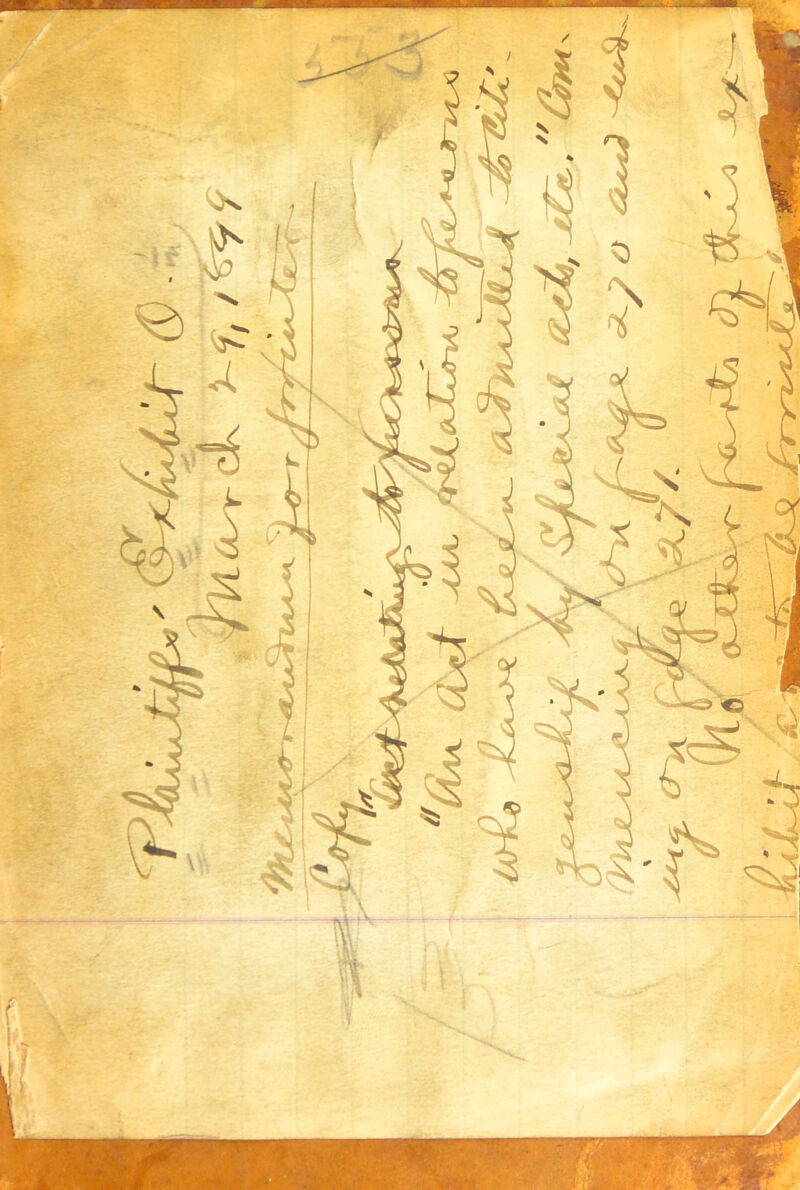 553
Plaintiffs' Exhibit O.
March 29, 1899
Memorandum for printer
Copy "Act relating to persons
"An Act in relation to persons
who have been admitted to citi-
zenship by special acts, etc." Com-
mencing on page 270 and end
ing on page 271.
No other parts of this ex-
hibit are to be printed